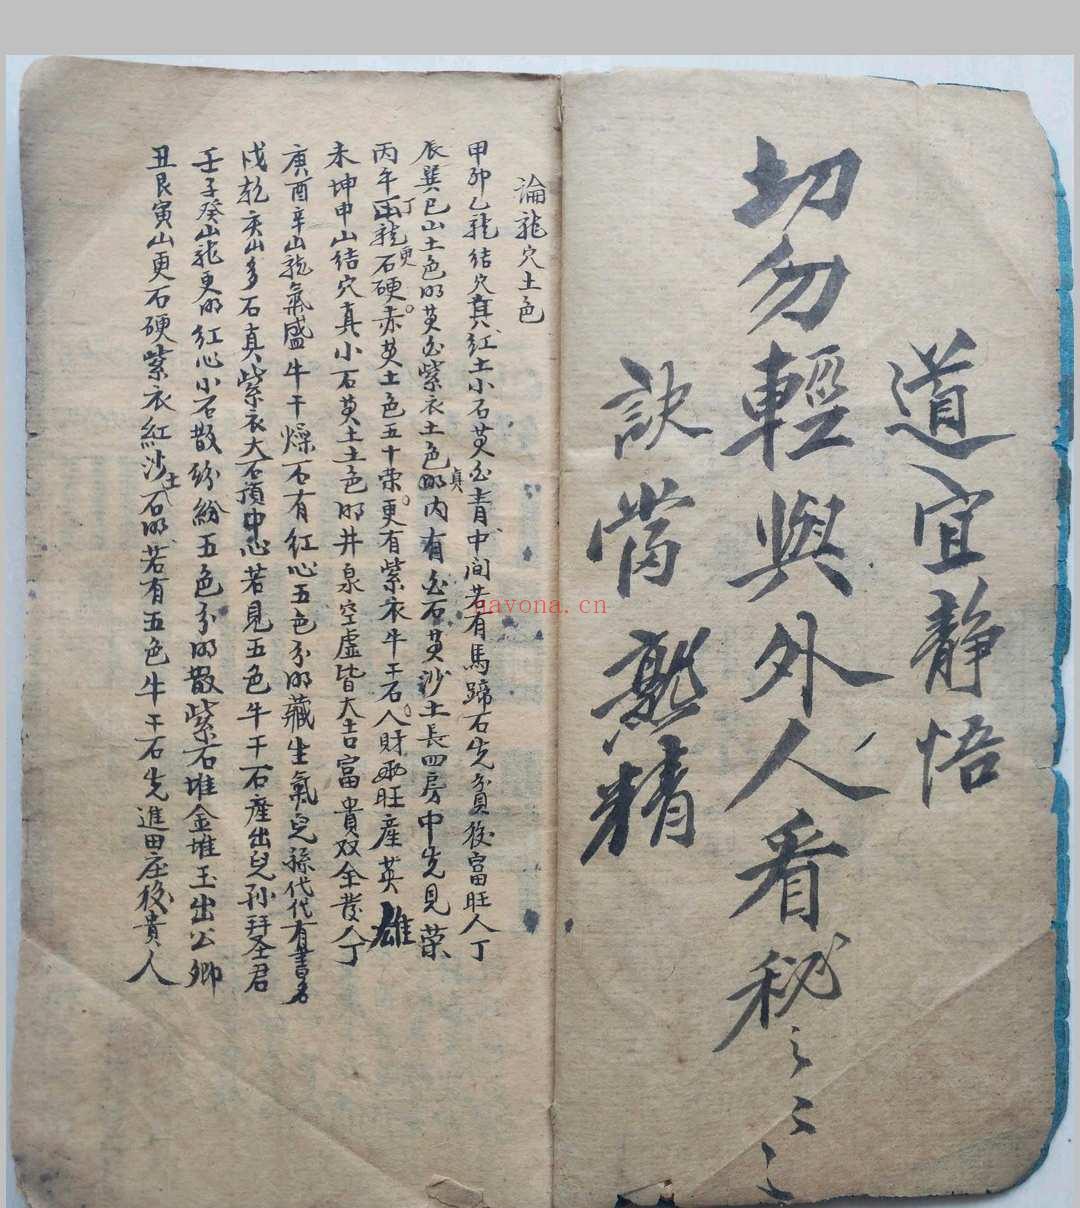 道宜靜悟
切勿輕與外人看秘々々々
訣當熟精
論龍穴土色
甲卯乙龍結穴真紅土小石黃白青中间若有馬蹄石先貧後富旺人丁
辰巽巳山土色明黃白紫衣土色明真内有白石黃沙土長四房中先見荣
丙午丁龍石更硬赤黃土色五十荣更有紫衣牛干石人財两旺産英雄
未坤申山結穴真小石黃土土色明井泉空虛皆大吉富貴双全發人丁
庚酉辛山龍氣盛牛干燥石有红心五色分明藏生氣兒孫代代有書名
戌乾亥山多石真紫衣大石頂中心若見五色牛干石産出兒孙拜圣君
壬子癸山龍更明红心小石散紛紛五色分明散紫石堆金堆玉出公卿
丑艮寅山更石硬紫衣紅沙土石明若有五色牛干石先進田庄後貴人
navona.cn